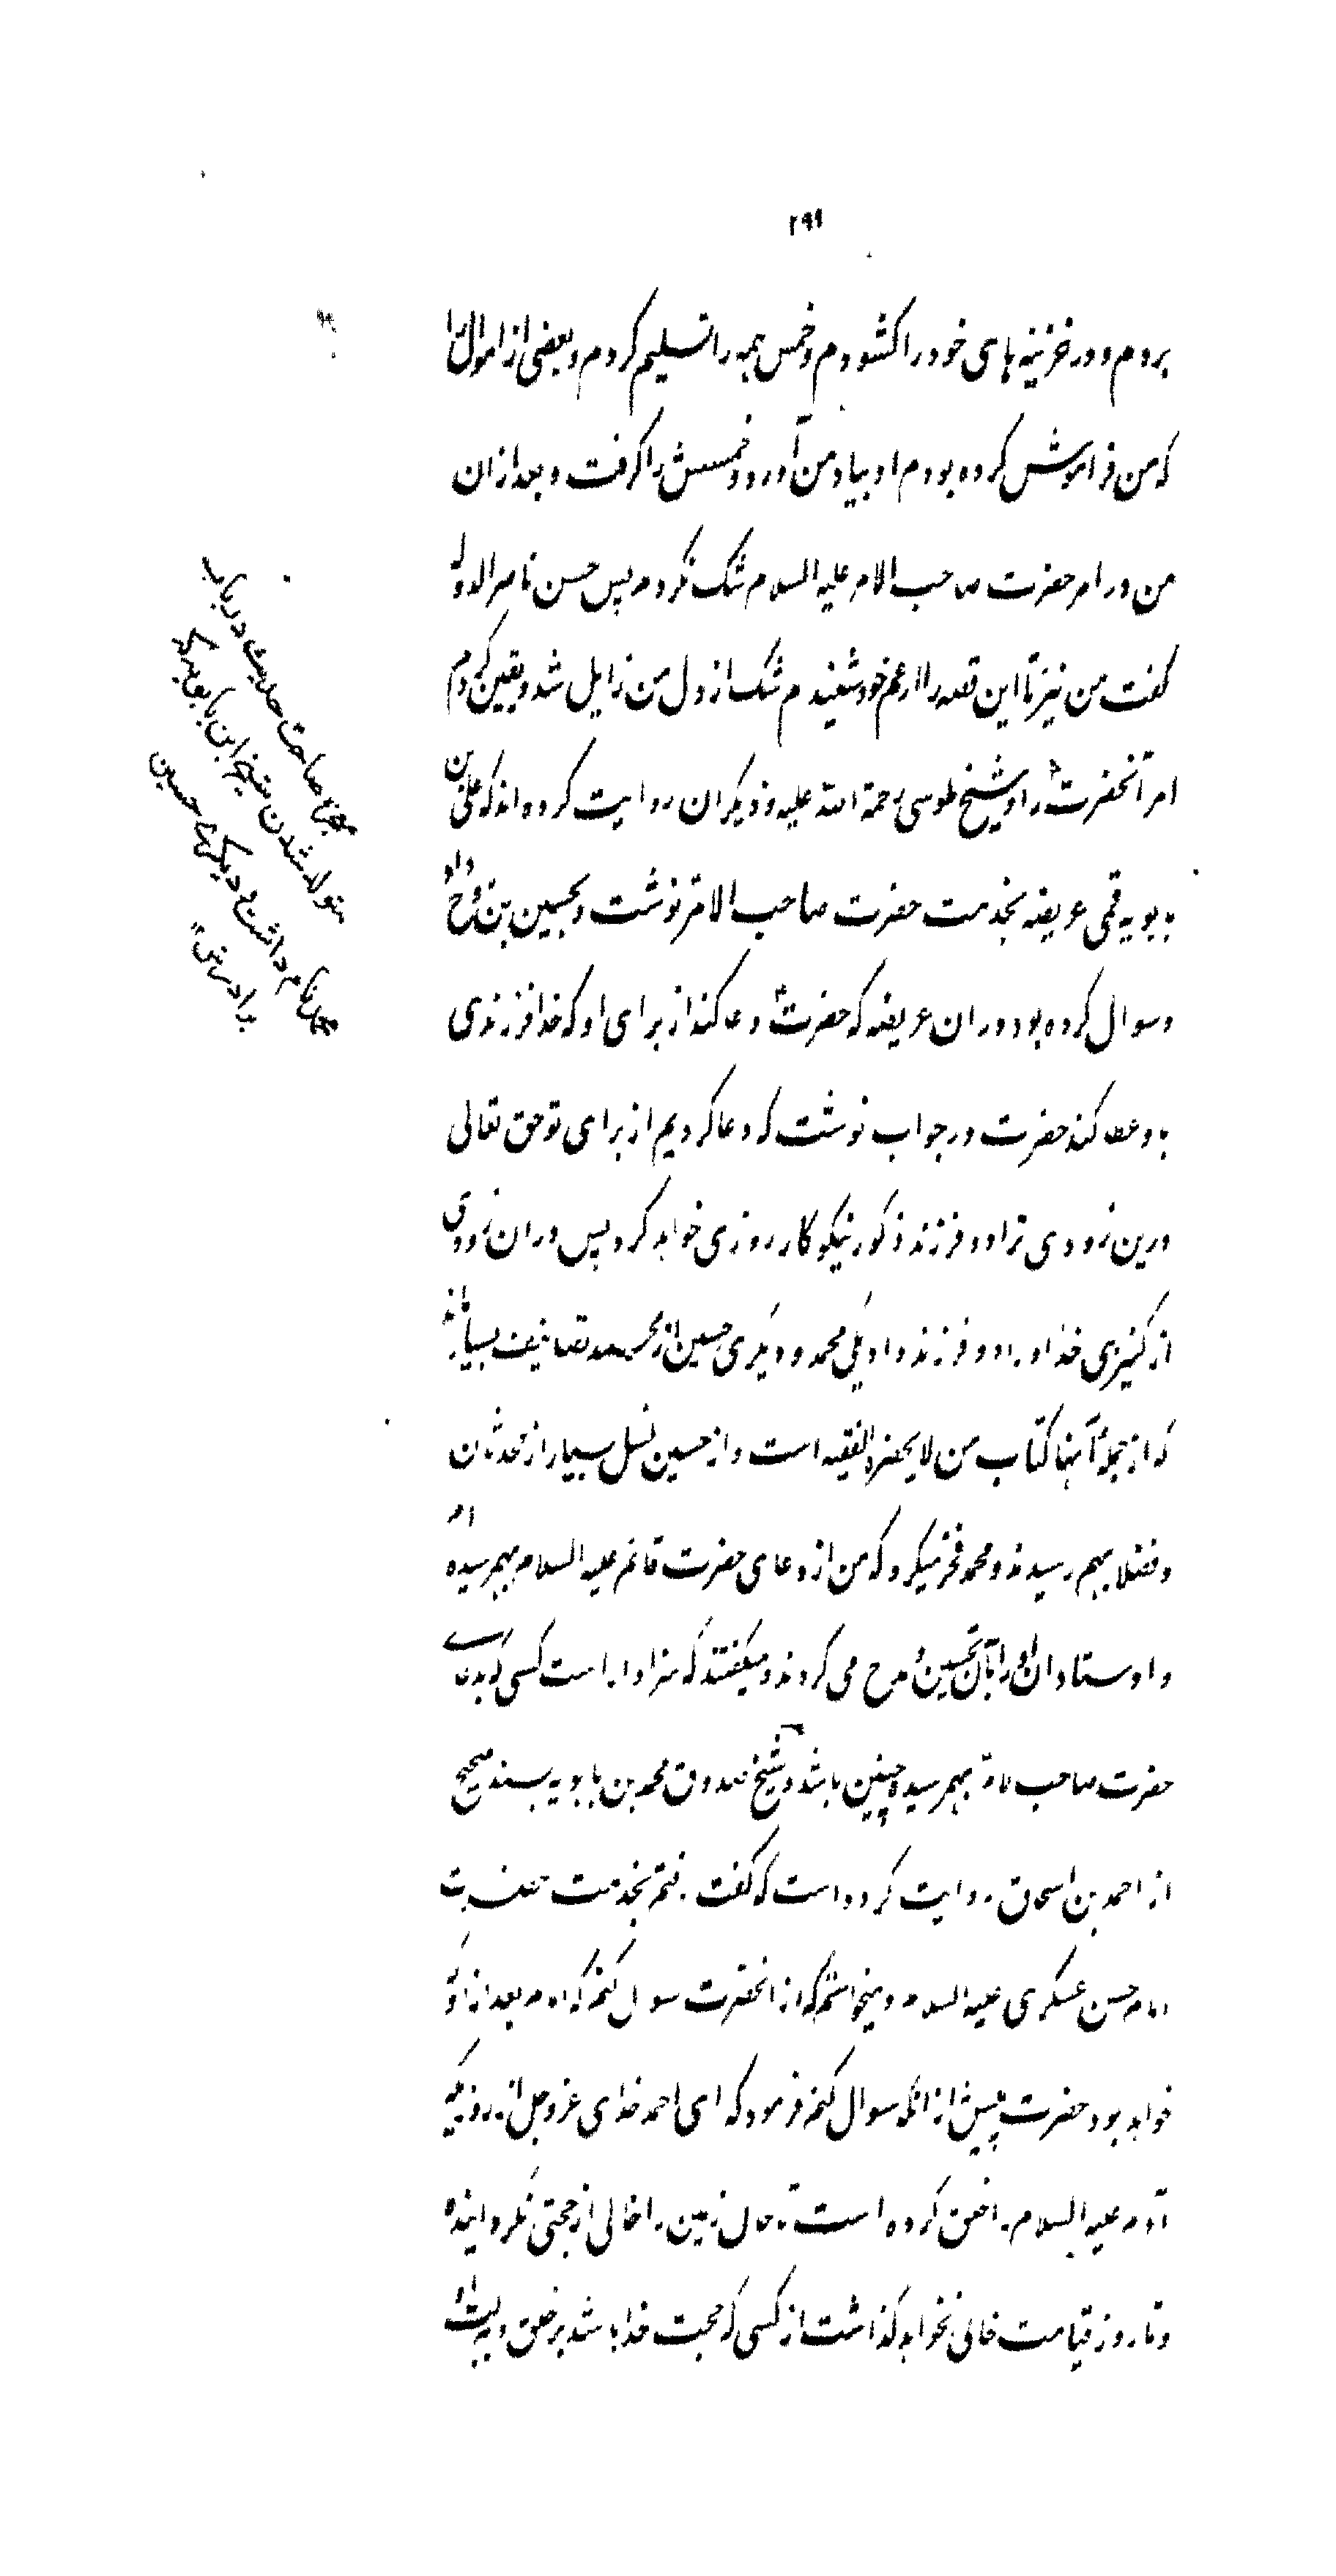 ۲۹۹
بردم و در خزینه های خود را کشودم و خمس همه را تسلیم کردم و بعضی از اموال را
که من فراموش کرده بودم او بیاد من آورد و خمسش را گرفت و بعد ازان
من در امر حضرت صاحب الامر علیه السلام شک نکردم پس حسن ناصر الدوله
گفت من نیز تا این قصه را از عم خود شنیدم شک از دل من زایل شد و یقین کردم
امر آنحضرت را و شیخ طوسی رحمة الله علیه و دیگران روایت کرده اند که علی بن
بابویه قمی عریضه بخدمت حضرت صاحب الامر نوشت و بحسین بن روح داد
و سوال کرده بود دران عریضه که حضرت دعا کند از برای او که خدا فرزندی
باو عطا کند حضرت در جواب نوشت که دعا کردیم از برای تو حق تعالی
درین زودی ترا دو فرزند ذکور نیکو کار روزی خواهد کرد پس دران زودی
از کنیزی خدا او را دو فرزند داد یکی محمد و دیگری حسین از محمد تصانیف بسیار ماند
که از جملۀ آنها کتاب من لا یحضره الفقیه است و از حسین نسل بسیار از محدثان
و فضلا بهم رسیدند و محمد فخر میکرد که من از دعای حضرت قائم علیه السلام بهم رسیده ام
و اوستادان او را بآن تحسین و مدح می کردند و میگفتند که سزاوار است کسی که بدعای
حضرت صاحب الامر بهم رسیده چنین باشد و شیخ صدوق محمد بن بابویه بسند صحیح
از احمد بن اسحاق روایت کرده است که گفت رفتم بخدمت حضرت
امام حسن عسکری علیه السلام و میخواستم که از انحضرت سوال کنم که امام بعد از او که
خواهد بود حضرت پیش از انکه سوال کنم فرمود که ای احمد خدای عزوجل از روزیکه
آدم علیه السلام را خلق کرده است تا حال زمین را خالی از حجتی نگردانیده
و تا روز قیامت خالی نخواهد گذاشت از کسی که حجت خدا باشد بر خلق و ببرکت او
معجزۀ صاحب حدیث در باب
متولد شدن شیخ ابن بابویه که
محمد نام داشت و دیگری حسین
برادرش